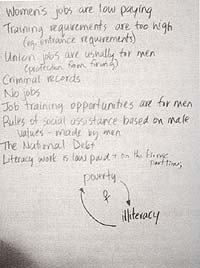 Women's jobs are low paying
Training requirements are too high
(eg. entrance requirements)
Union jobs are usually for men
(protection from firing)
Criminal records
No jobs
Job training opportunities are for men
Rules of social assistance based on male
values - made by men
The National Debt
Literacy work is low paid + on the
part time,
poverty
&
illiteracy